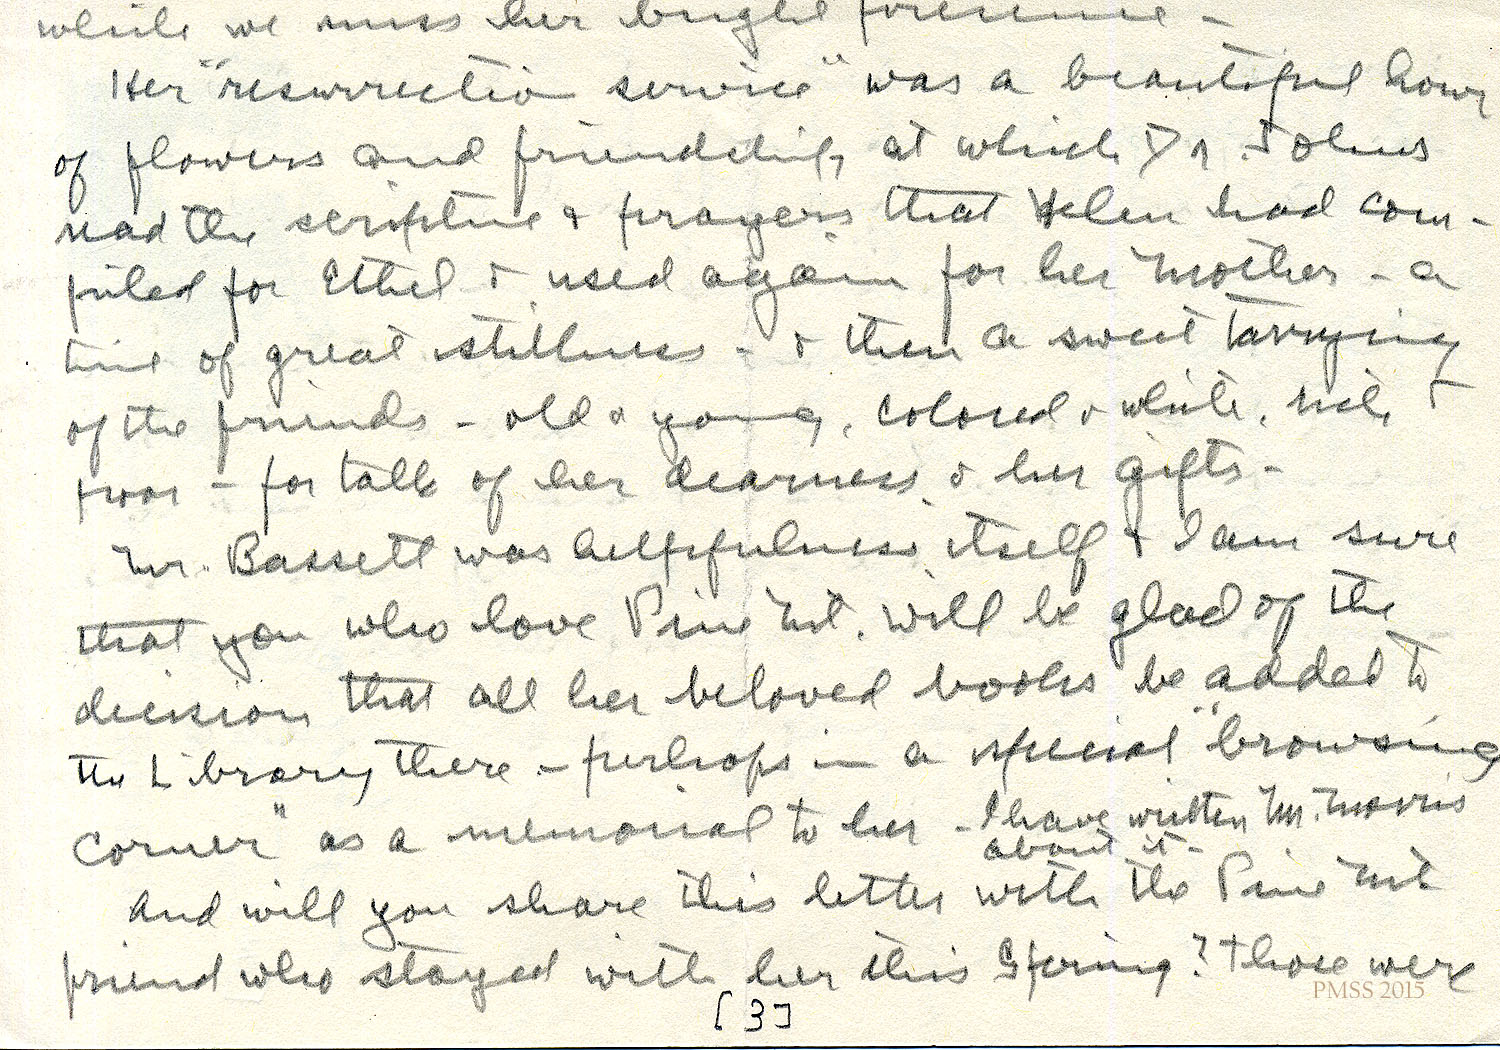 while we miss her bright presence -
Her "resurrection service" was a beautiful hour
of flowers and friendship, at which Dr. Johns
read the scripture & prayers that Helen had com-
piled for Ethel & used again for her Mother - a
time of great stillness - & then a sweet tarrying
of the friends - old & young, colored & white, rich &
poor - for talk of her dearness & her gifts -
Mr. Bassett was helpfulness itself & I am sure
that you who love Pine Mt. will be glad of the
decision that all her beloved books be added to
the Library there - perhaps in a special "browsing
corner" as a memorial to her - I have written Mr. Morris
about it -
And will you share this letter with the Pine Mt
friend who stayed with her this Spring? Those were
PMSS 2015
[3]